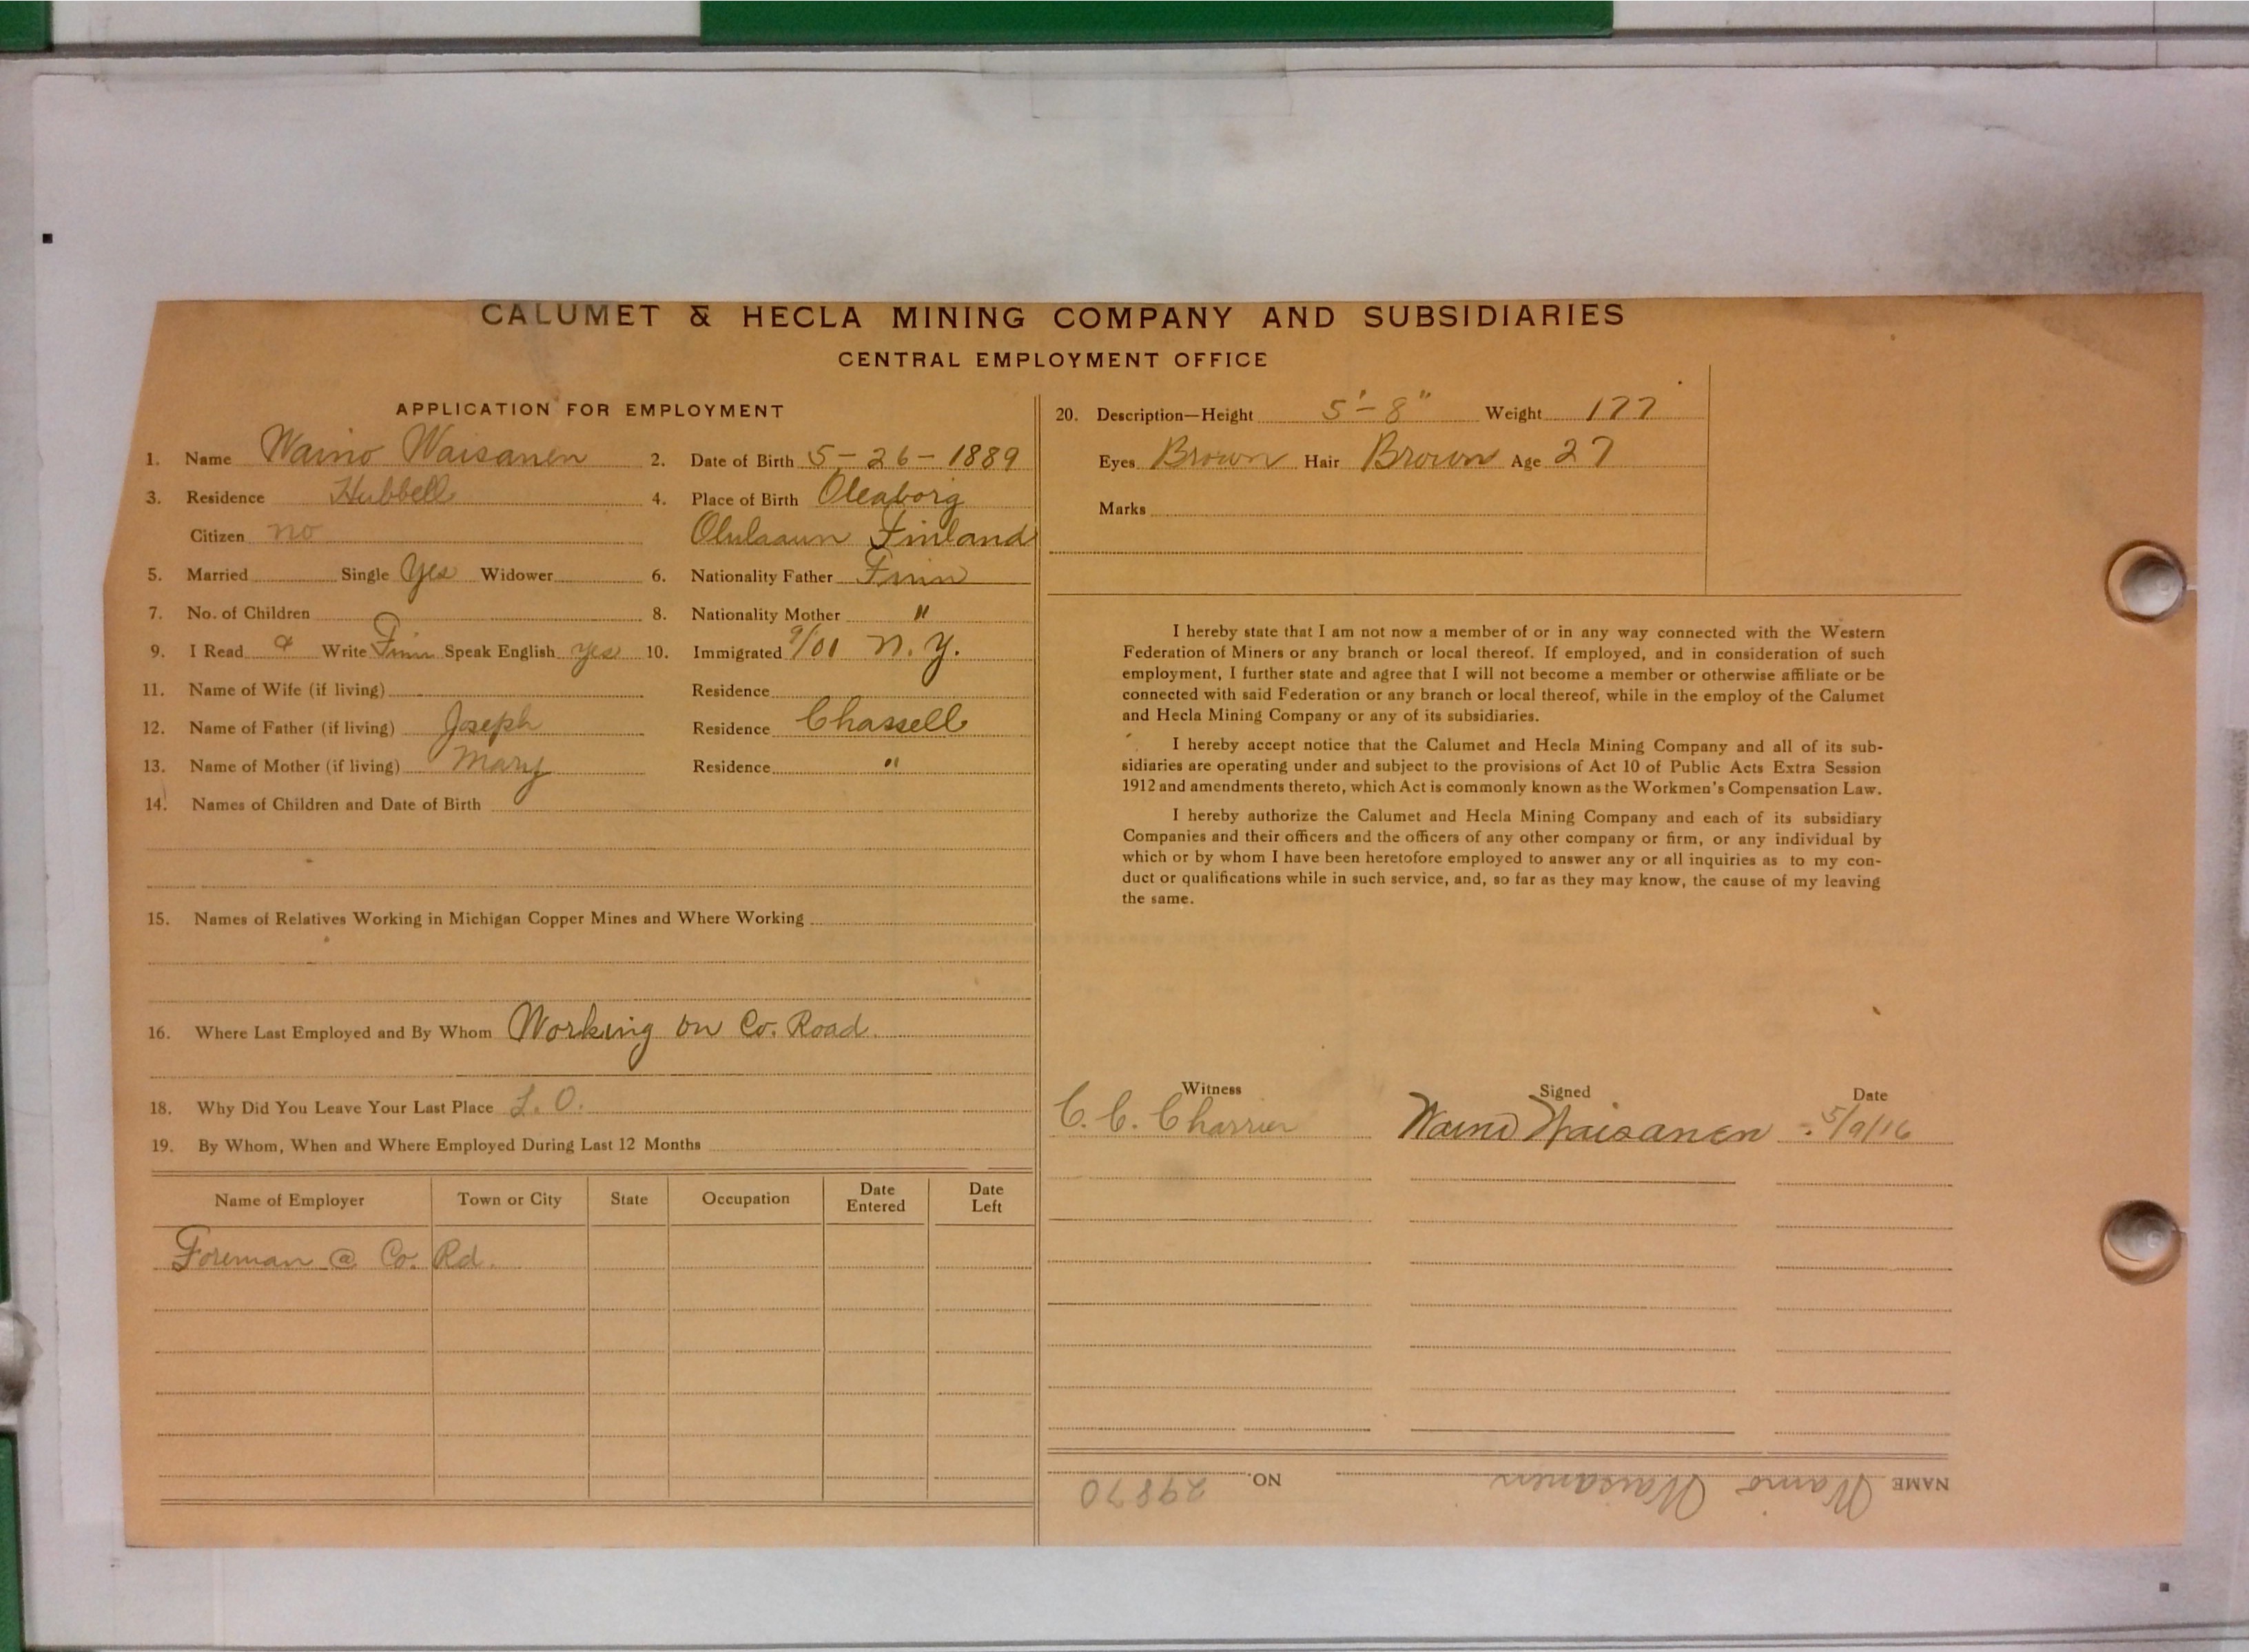 CALUMET & HECLA MINING COMPANY AND SUBSIDIARIES
CENTRAL EMPLOYMENT OFFICE
APPLICATION FOR EMPLOYMENT
1. Name Waino Waisanen 2. Date of Birth 5-26-1889
3. Residence Hubbell 4. Place of Birth Oleaborg
Citizen no Finland
5. Married Single Yes Widower 6. Nationality Father Finn
7. No. of Children 8. Nationality Mother "
9. I Read & Write Finn Speak English yes 10. Immigrated 9/01 N.Y.
11. Name of Wife (if living) Residence
12. Name of Father (if living) Joseph Residence Chassell
13. Name of Mother (if living) Mary Residence "
14. Names of Children and Date of Birth
15. Names of Relatives Working in Michigan Copper Mines and Where Working
16. Where Last Employed and By Whom Working on Co. Road
18. Why Did You Leave Your Last Place L. O.
19. By Whom, When and Where Employed During Last 12 Months
Name of Employer Town or City State Occupation Date Entered Date Left
Foreman @ Co. Rd.
20. Description—Height 5'-8" Weight 177
Eyes Brown Hair Brown Age 27
Marks
I hereby state that I am not now a member of or in any way connected with the Western
Federation of Miners or any branch or local thereof. If employed, and in consideration of such
employment, I further state and agree that I will not become a member or otherwise affiliate or be
connected with said Federation or any branch or local thereof, while in the employ of the Calumet
and Hecla Mining Company or any of its subsidiaries.
I hereby accept notice that the Calumet and Hecla Mining Company and all of its sub-
sidiaries are operating under and subject to the provisions of Act 10 of Public Acts Extra Session
1912 and amendments thereto, which Act is commonly known as the Workmen's Compensation Law.
I hereby authorize the Calumet and Hecla Mining Company and each of its subsidiary
Companies and their officers and the officers of any other company or firm, or any individual by
which or by whom I have been heretofore employed to answer any or all inquiries as to my con-
duct or qualifications while in such service, and, so far as they may know, the cause of my leaving
the same.
Witness Signed Date
C. C. Charrier Waino Waisanen 5/9/16
NAME Waino Waisanen NO. 29870